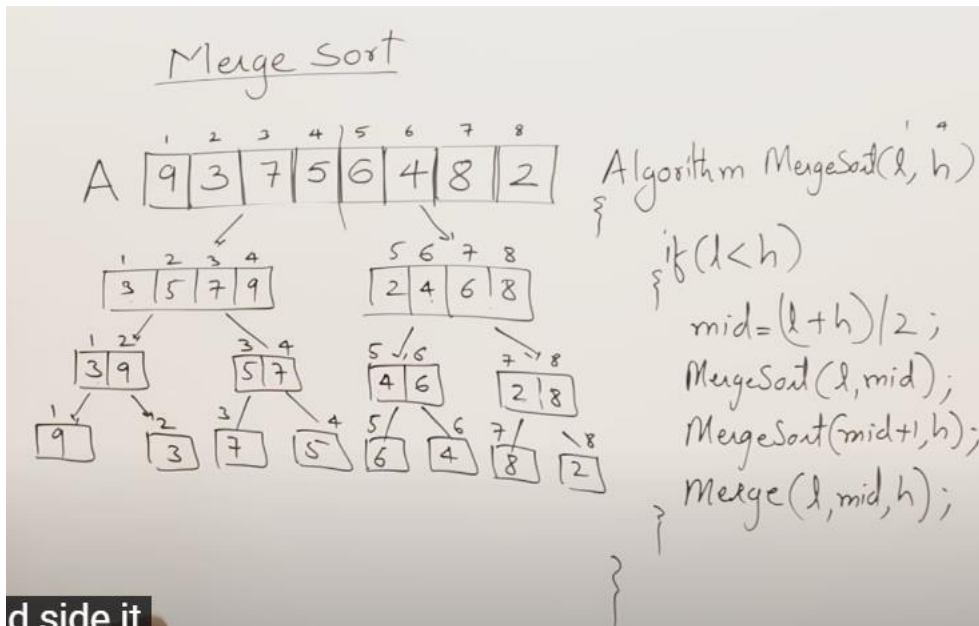 Merge Sort
1 2 3 4 5 6 7 8
A 9 3 7 5 6 4 8 2
1 2 3 4 5 6 7 8
3 5 7 9 2 4 6 8
1 2 3 4 5 6 7 8
3 9 5 7 4 6 2 8
1 2 3 4 5 6 7 8
9 3 7 5 6 4 8 2
1 4
Algorithm MergeSort(l, h)
{
if(l<h)
{
mid=(l+h)/2;
MergeSort(l,mid);
MergeSort(mid+1,h);
Merge(l,mid,h);
}
}
d side it